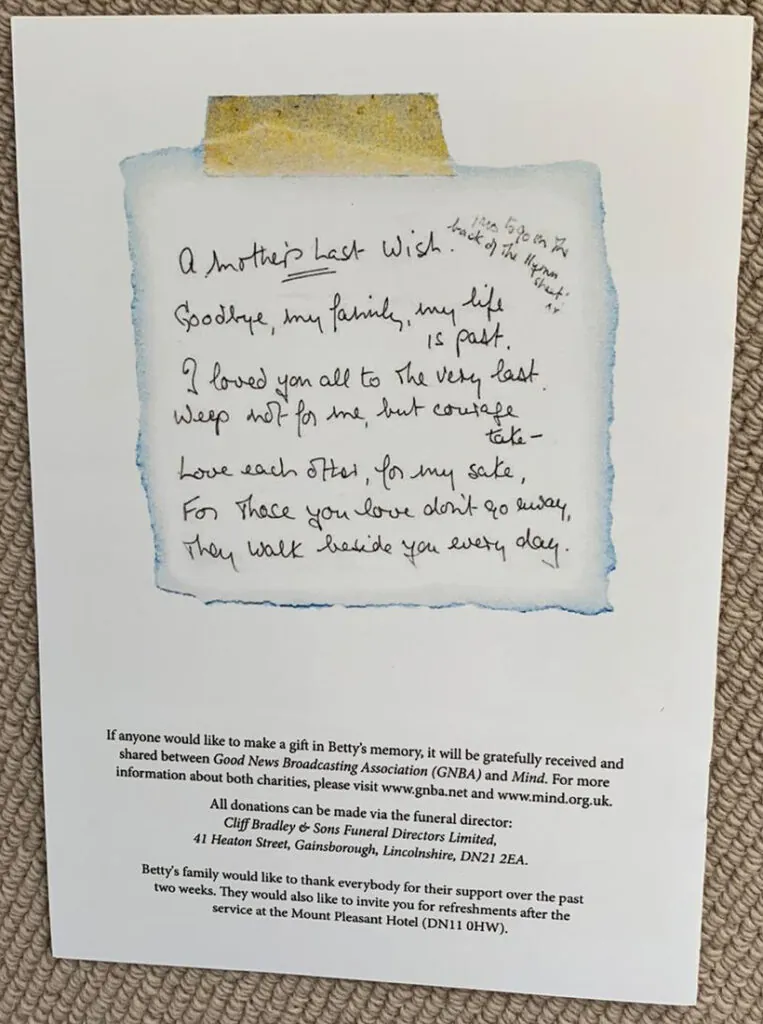 A Mother's Last Wish.
to go on The
back of The Hymn
sheet'
Goodbye, my family, my life
is past.
I loved you all to The very last.
Weep not for me, but courage
take-
Love each other, for my sake,
For Those you love don't go away,
They walk beside you every day.
If anyone would like to make a gift in Betty's memory, it will be gratefully received and
shared between Good News Broadcasting Association (GNBA) and Mind. For more
information about both charities, please visit www.gnba.net and www.mind.org.uk.
All donations can be made via the funeral director:
Cliff Bradley & Sons Funeral Directors Limited,
41 Heaton Street, Gainsborough, Lincolnshire, DN21 2EA.
Betty's family would like to thank everybody for their support over the past
two weeks. They would also like to invite you for refreshments after the
service at the Mount Pleasant Hotel (DN11 0HW).